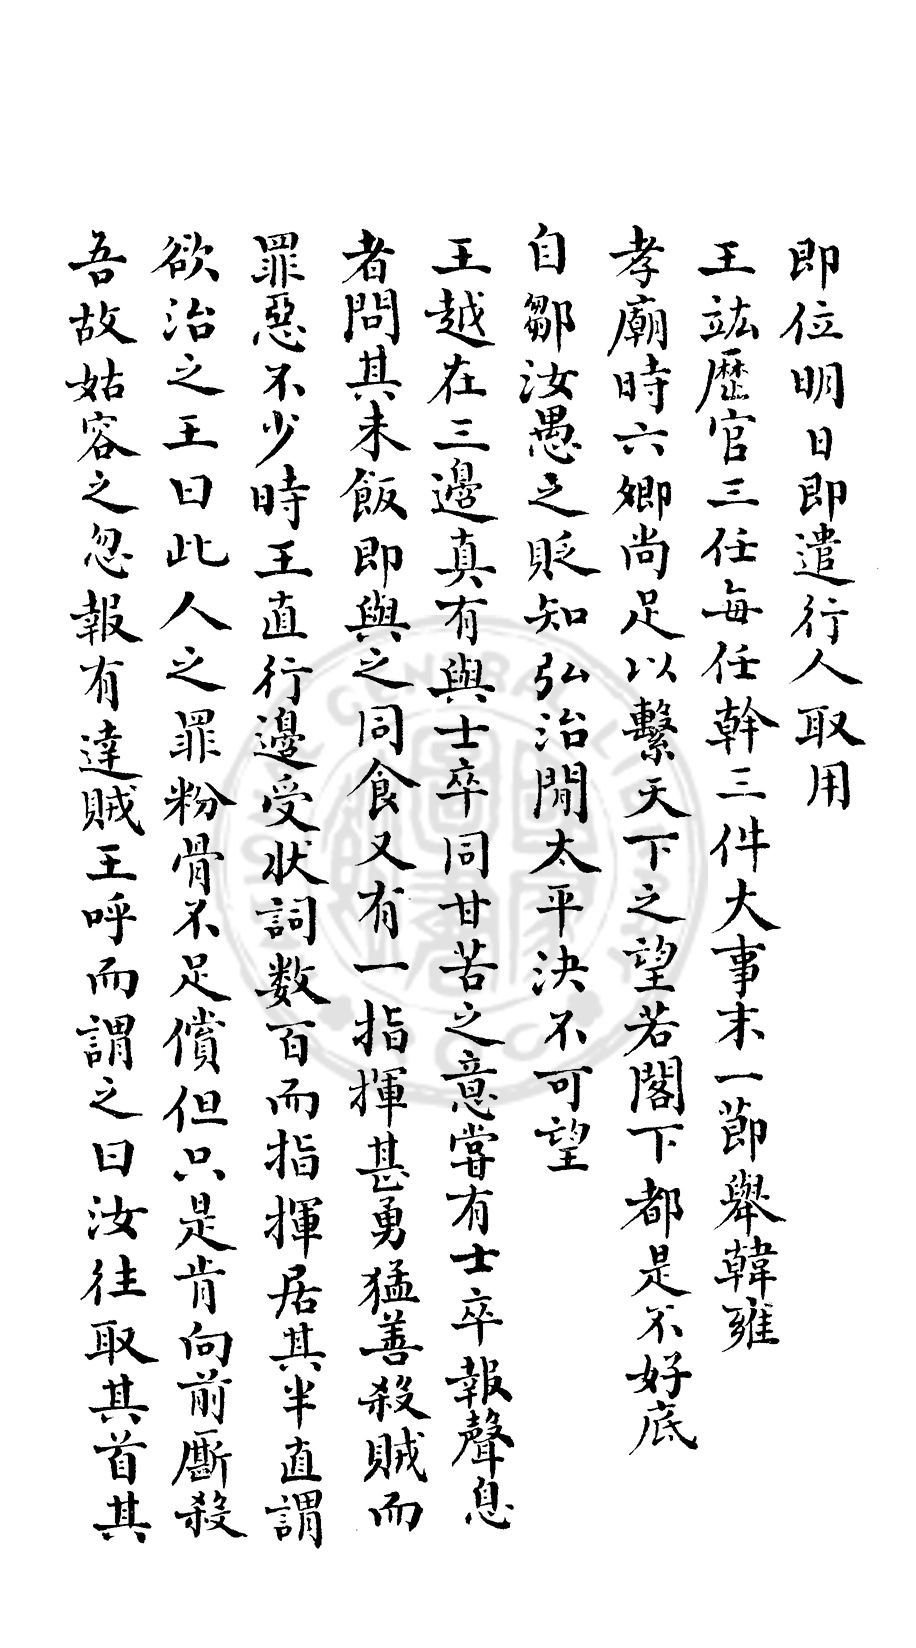 即位明日即遣行人取用
王竑歷官三任每任幹三件大事末一節舉韓雍
孝廟時六卿尚足以繫天下之望若閣下都是不好底
自鄒汝愚之貶知弘治間太平決不可望
王越在三邊真有與士卒同甘苦之意嘗有士卒報聲息
者問其未飯即與之同食又有一指揮甚勇猛善殺賊而
罪惡不少時王直行邊受狀詞数百而指揮居其半直謂
欲治之王曰此人之罪粉骨不足償但只是肯向前厮殺
吾故姑容之忽報有達賊王呼而謂之曰汝往取其首其